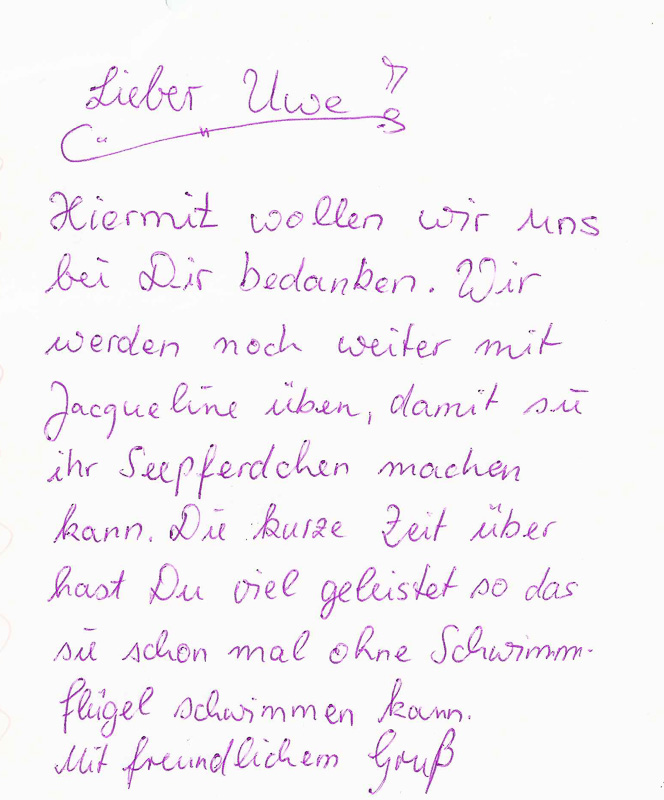 Lieber Uwe
Hiermit wollen wir uns
bei Dir bedanken. Wir
werden noch weiter mit
Jacqueline üben, damit sie
ihr Seepferdchen machen
kann. Die kurze Zeit über
hast Du viel geleistet so das
sie schon mal ohne Schwimm-
flügel schwimmen kann.
Mit freundlichem Gruß